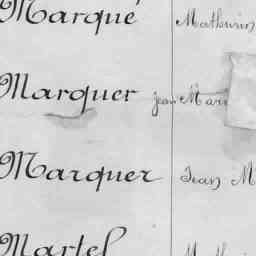 Marqué Mathurin
Marquer Jean Mari
Marquer Jean M
Martel Mathu